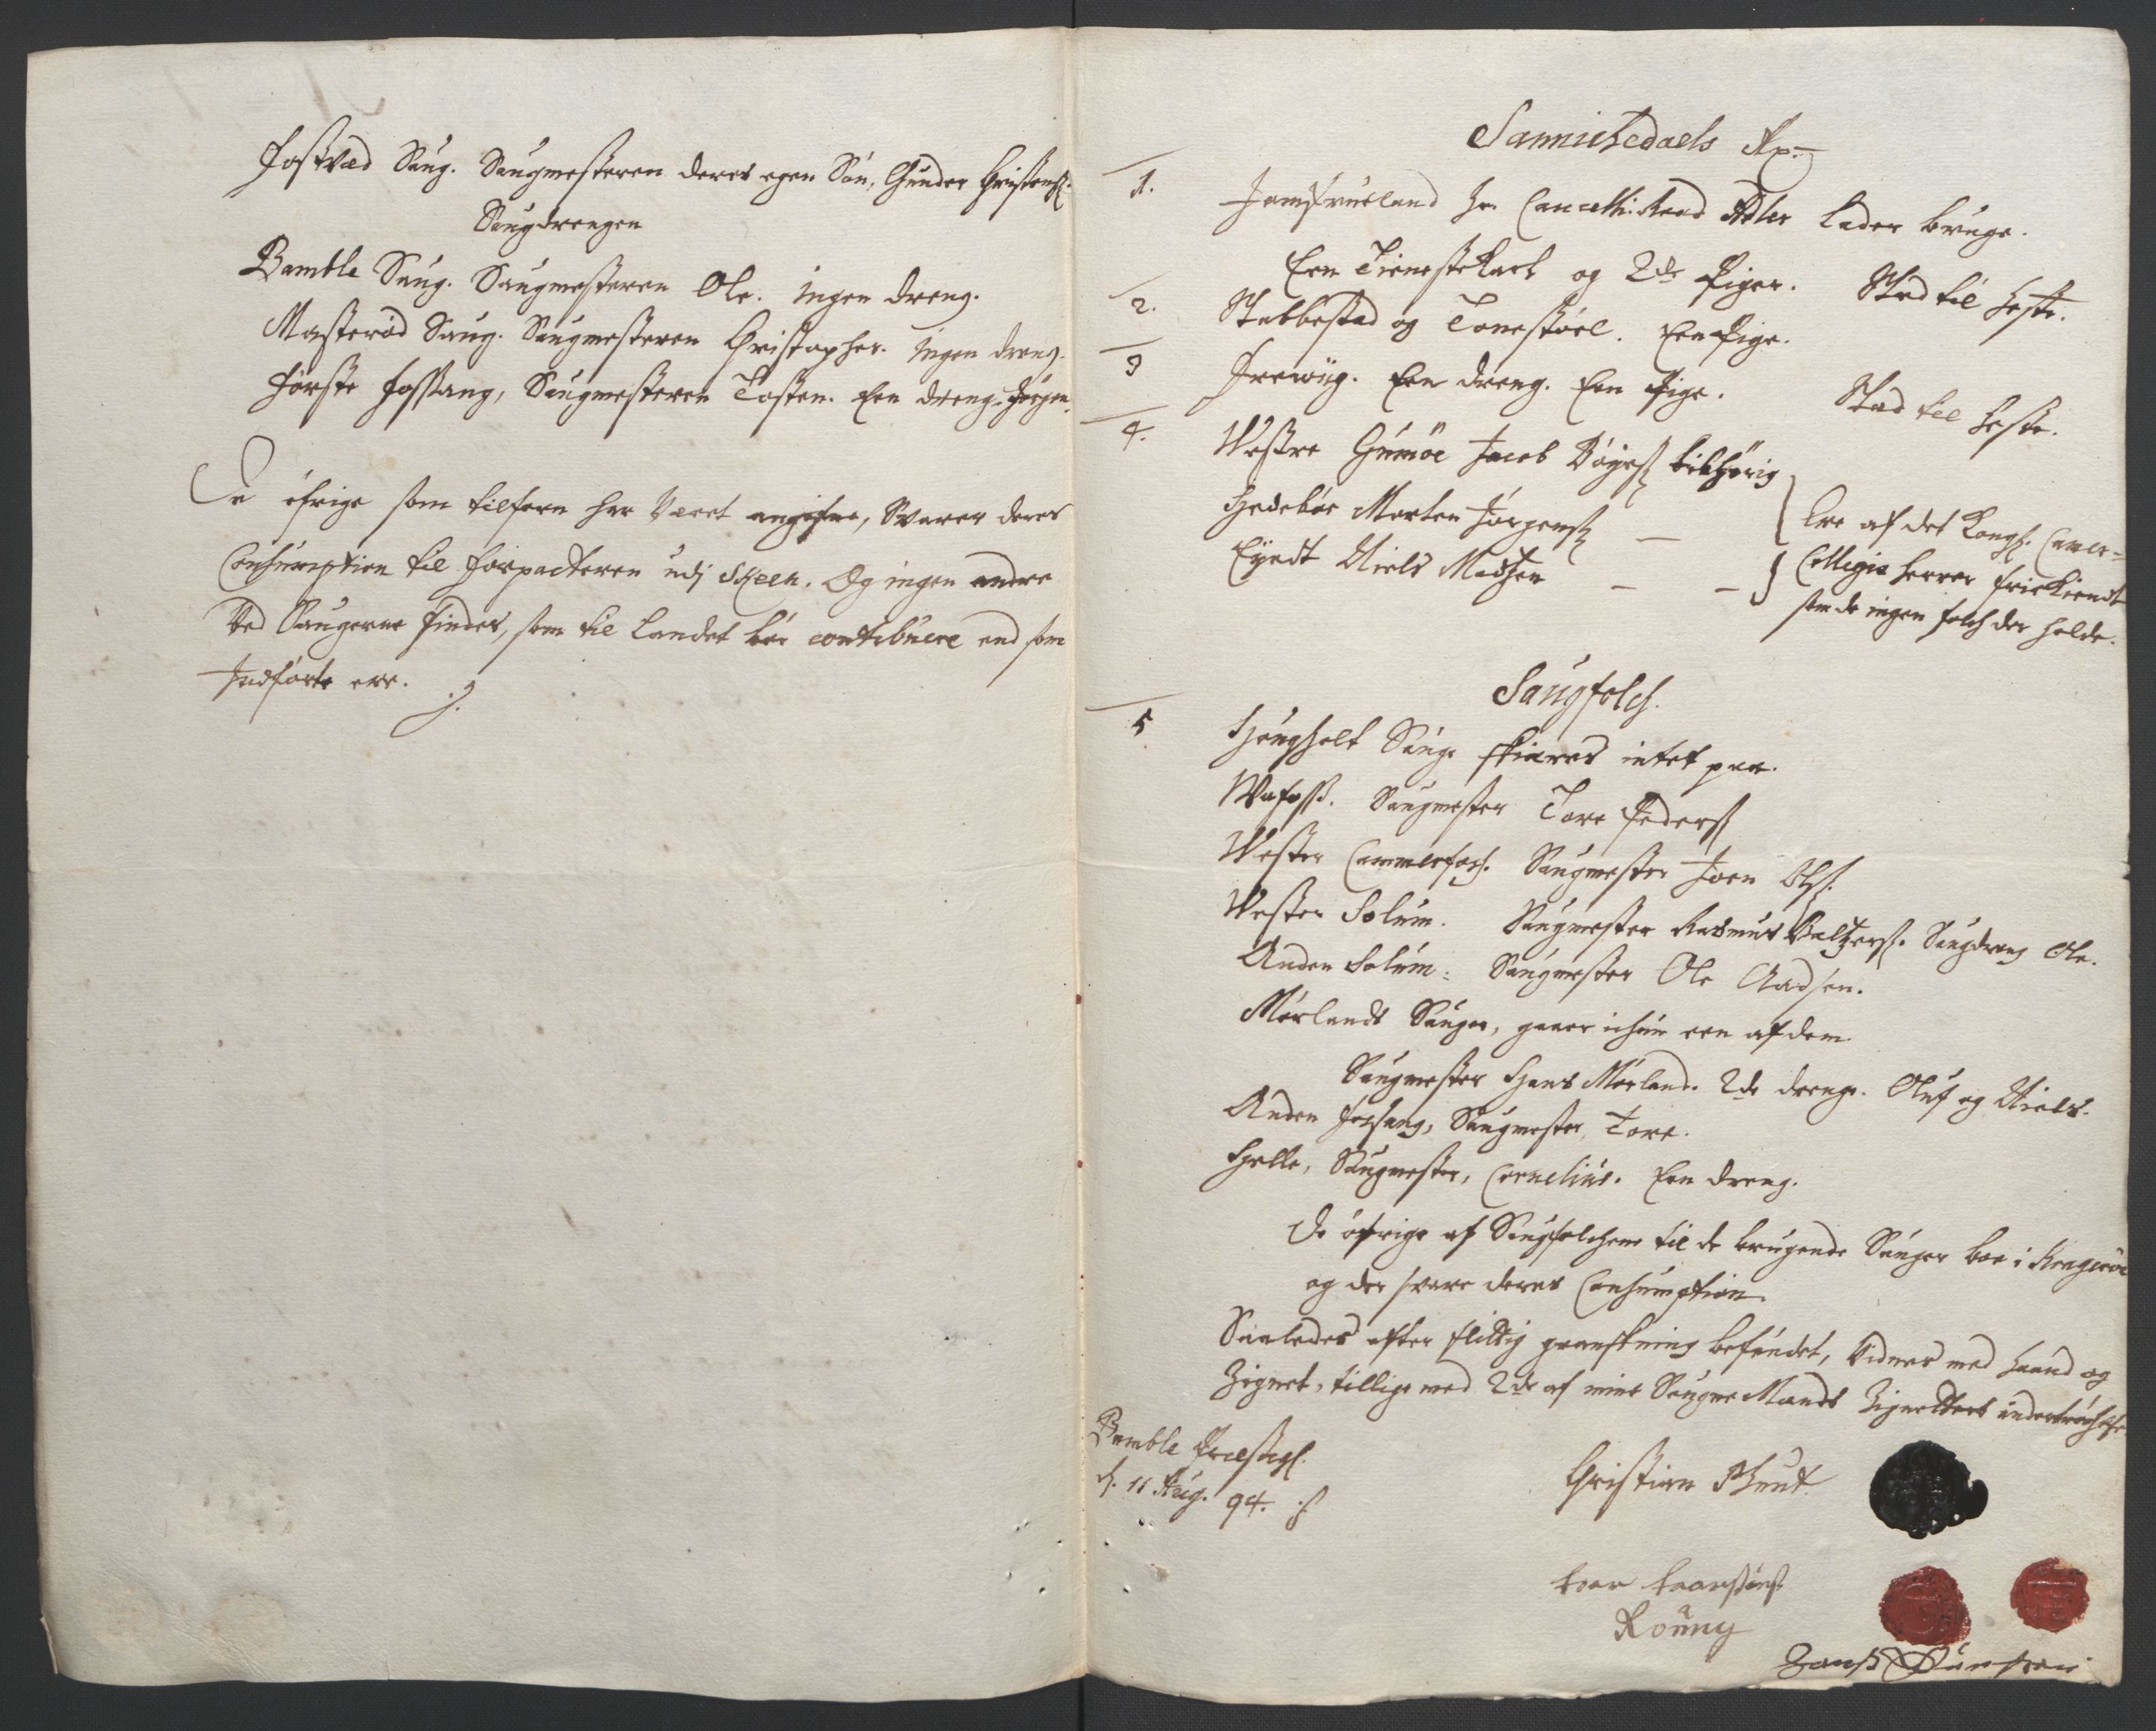 Fostvad Saug. Saugmesteren deres egen Sön, Gunder Christens.
Saugdrengen
Bamble Saug. Saugmesteren Ole. ingen dreng.
Masteröd Saug. Saugmesteren Christopher. ingen dreng.
Förste Fossang, Saugmesteren Tosten. Een dreng Jörgen.
De öfrige som tilforn har været angifne, Svarer deres
Consumption til forpacteren udj Skeen. Og ingen andre
Ved Saugerne findes, som til Landet bör contribuere end som
Indförte ere.
Sannichedaels
1. Jomfrueland Hr. Cancelli: Raad Adler lader bruge.
Een Tienestekarl og 2de Piger. Stad til heste.
2. Stabbestad og Tonestöel. Een Pige.
3 Een dreng. Een Pige. Stad til heste.
4. Westre Gumöe Jacob Böyes. tilhörig
Hedebör Morten Jörgens. —
Eyedt Niels Madsen — —
Ere af det Kongl. Camer-
Collegio herrer friekiendt
som de ingen folch der holde.
Saugfolch.
5 Haugholt Sauge skieres intet paa.
Wafoss. Saugmester Tore Peders.
Wester Cammerfoss. Saugmester Joen Ols.
Wester Solum. Saugmester Rasmus Baltzers. Saugdreng Ole.
Anden Solum. Saugmester Ole Aadsen.
Mörlands Sauger, gaaer ichun een af dem
Saugmester Hans Mörland. 2de drenge. Oluf og Niels.
Anden Fossang, Saugmester Tore.
Helle, Saugmester, Cornelius. Een dreng.
De öfrige af Saugfolchene til de brugende Sauger boe i Krageröe
og der svare deres Consumption.
Saaledes efter flittig granskning befundet, Vidner med haand og
Zignet, tillige med 2de af mine Saugne Mænds Zignetters undertrychelse
Bamble Præstegl.
d. 11 Aug. 94.
Christian
Rönny